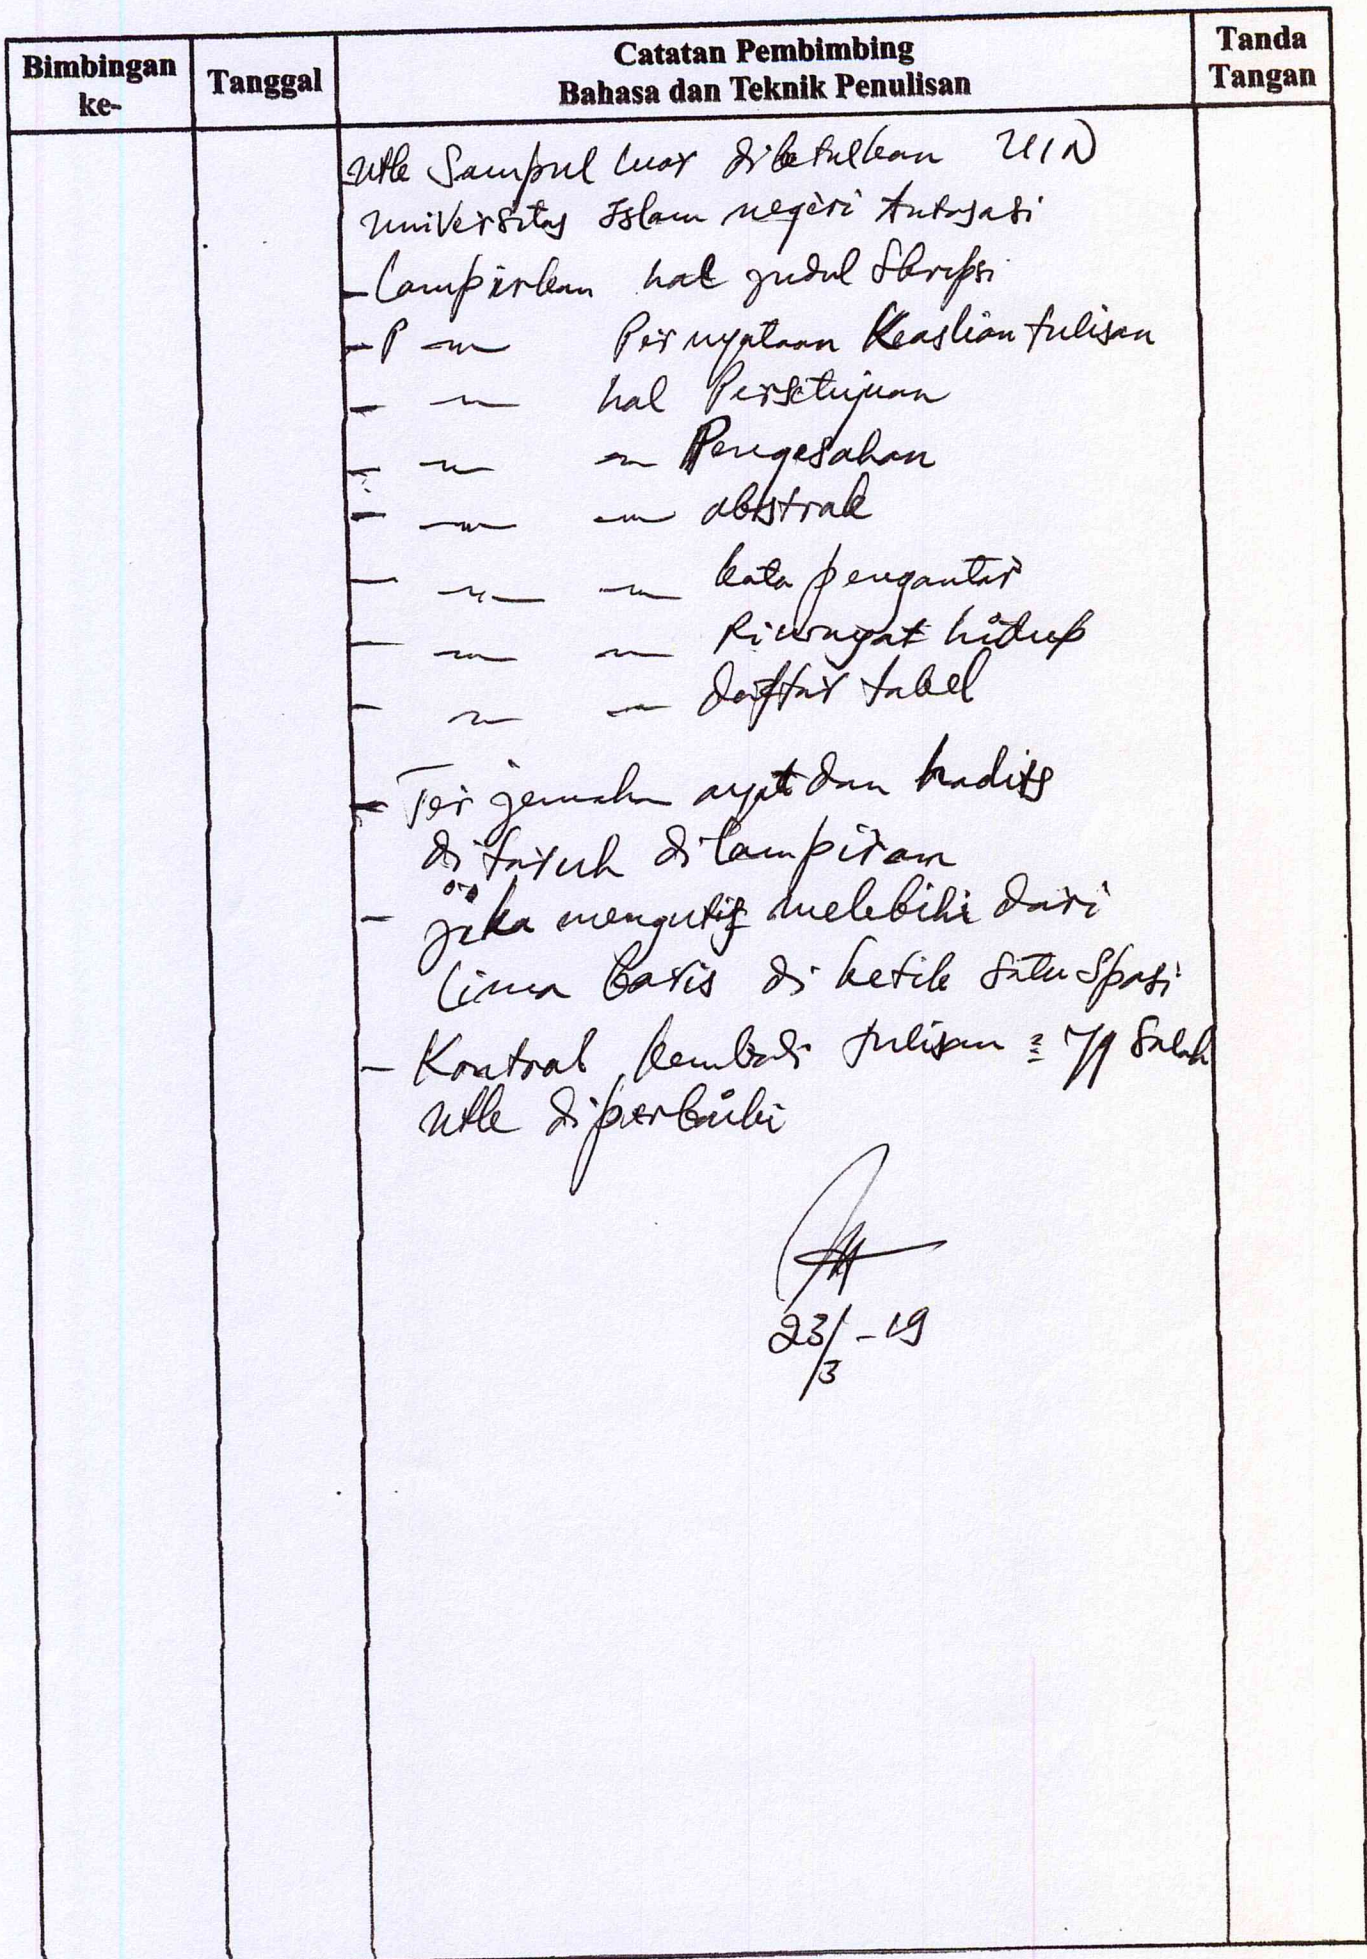 Bimbingan ke-
Tanggal
Catatan Pembimbing
Bahasa dan Teknik Penulisan
Tanda Tangan
utk Sampul luar dibetulkan UIN
Universitas Islam negeri Antasari
- Lampirkan hal judul Skripsi
- P —〃— Pernyataan Keaslian tulisan
- —〃— hal Persetujuan
- —〃— —〃— Pengesahan
- —〃— —〃— abstrak
- —〃— —〃— kata pengantar
- —〃— —〃— Riwayat hidup
- —〃— —〃— daftar tabel
- Terjemahan ayat dan hadits
di taruh di lampiran
- jika mengutip melebihi dari
lima baris di ketik satu spasi
- Kontrol kembali tulisan = yg salah
utk diperbaiki
23/3 - 19